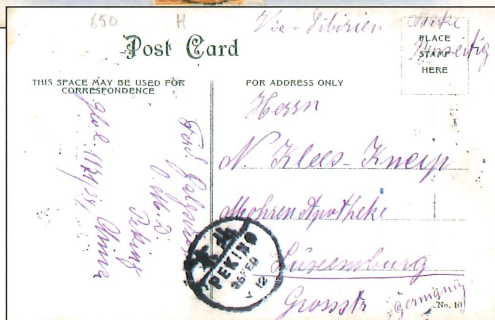 650 H
Via - Sibirien Marke
Post Card
PLACE
STAMP
HERE
THIS SPACE MAY BE USED FOR
CORRESPONDENCE
FOR ADDRESS ONLY
Herrn
N. Klees-Kneip
Mohren Apotheke
Luxemburg
Grossstr
Germany
No. 10
Peking
China
PEKING
FEB
12